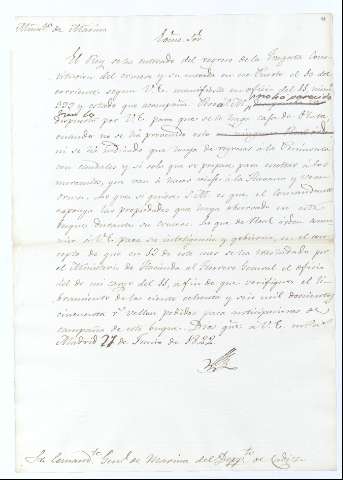 Minist.º de Marina
Excmo. Sor.
El Rey se ha enterado del regreso de la Fragata Cons-
titucion del crucero y su entrada en ese Puerto el 20 del
corriente segun V.E. manifiesta en oficio del 21 num.º
222 y estado que acompaña
por V.E. para que se le haga
cuando no se ha prevenido esto
ni se ha indicado que haya de regresar a la Peninsula
con caudales y si solo que se prepare para custodiar a los
mercantes, que van a hacer viaje a la Havana y Vera-
cruz. Lo que si quiere S.M. es que el Comandante
exponga las propiedades que haya observado en este
buque durante su crucero. Lo que de Real orden comu-
nico a V.E. para su inteligencia y gobierno, en el con-
cepto de que en 12 de este mes se ha trasladado por
el Ministerio de Hacienda al Tesorero General el oficio
del de mi cargo del 11, a fin de que verifique el li-
bramiento de los ciento ochenta y seis mil doscientos
cincuenta r.s vellon pedidos para anticipaciones de
campaña de este buque. Dios gue. a V.E. m.s a.s
Madrid 27 de Junio de 1822
Sr. Comand.te Gen.l de Marina del Dep.to de Cadiz.